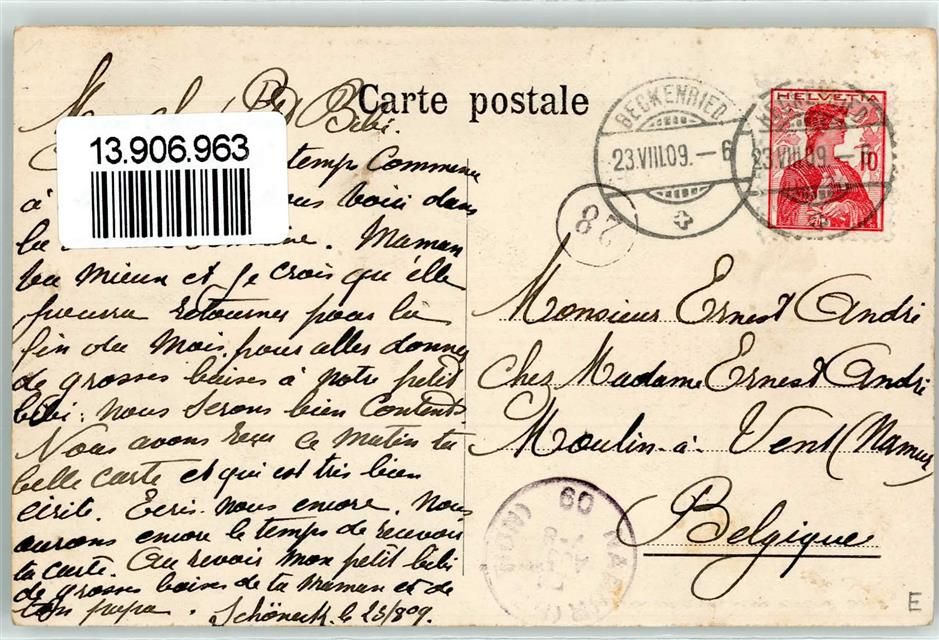 Carte postale
Bébé.
13.906.963
temps commence
à nous voici dans
la Semaine. Maman
va mieux et je crois qu'elle
pourra retourner pour la
fin du mois, pour aller donner
de grosses baises à notre petit
bébé: nous serons bien contents
Nous avons reçu ce matin ta
belle carte et qui est très bien
écrite. Ecris-nous encore. Nous
aurons encore le temps de recevoir
ta carte. Au revoir mon petit bébé
de grosses baises de ta maman et de
ton papa. Schöneck le 23/8 09.
BECKENRIED
23.VIII.09.–6
HELVETIA
10
BECKENRIED
23.VIII.09.–
28
Monsieur Ernest André
Chez Madame Ernest André
Moulin-à-Vent (Namur)
Belgique
NAMUR (NORD)
09
E